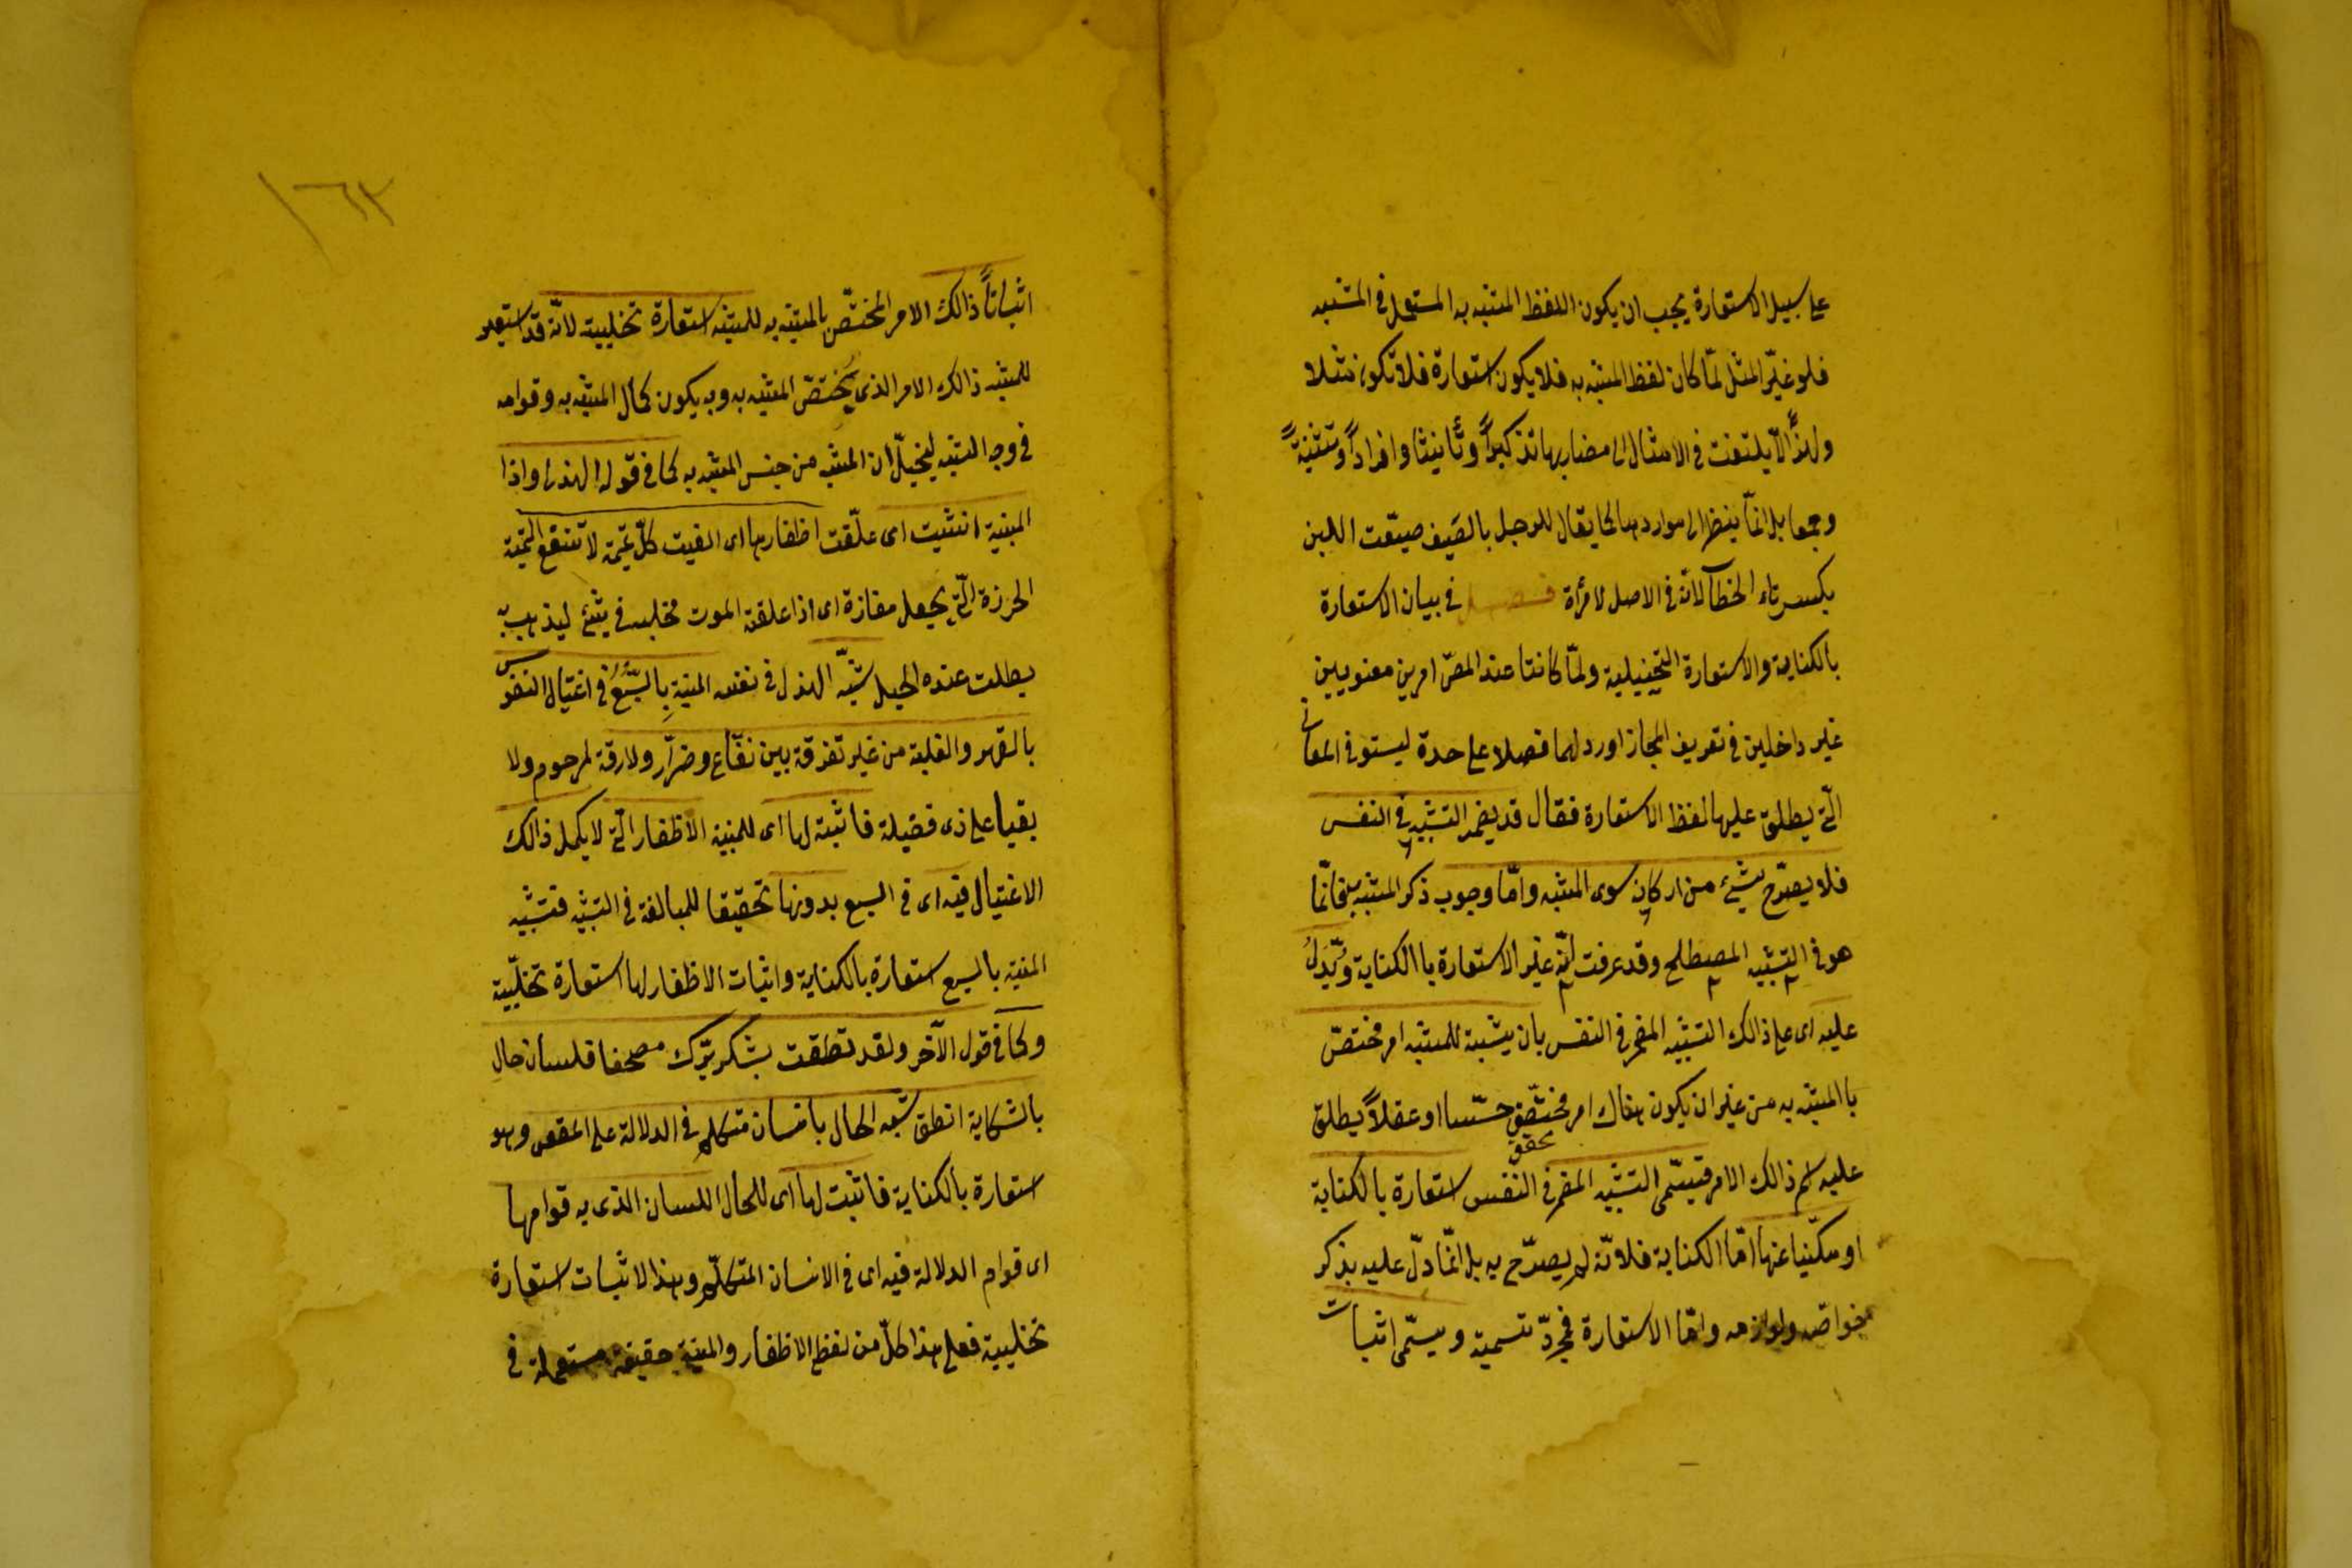 على سبيل الاستعارة يجب ان يكون اللفظ المشبه به المستعمل في المشبه
فلو غيّر المثل لمّا كان لفظ المشبه به فلا يكون استعارة فلا تكون مثلا
ولهذا لا يلتفت في الامثال الى مضاربها تذكيراً وتأنيثا وافراداً وتثنيةً
وجمعا بل انّما ينظر الى مواردها كما يقال للرجل بالصَيف ضيّعت اللبن
بكسر تاء الخطاب لانّه في الاصل لامرأة فصل في بيان الاستعارة
بالكناية والاستعارة التخييلية ولمّا كانتا عند المصّ امرين معنويين
غير داخلين في تعريف المجاز اورد لهما فصلا على حدة ليستوفى المعانى
الّتي يطلق عليها لفظ الاستعارة فقال قد يضمر التشبيه في النفس
فلا يصرّح بشيء من اركانه سوى المشبه وامّا وجوب ذكر المشبه به فانّما
هو في التشبيه المصطلح وقد عرفت انّه غير الاستعارة باالكناية ويَدُلّ
عليه اى على ذالك التشبيه المضمر في النفس بان يثبت للمشبه امر مختصّ
باالمشبه به من غير ان يكون هناك امر مختصّ حسّا او عقلاً يطلق
محقق
عليه اسم ذالك الامر فيسمّى التشبيه المضمر في النّفس استعارة بالكناية
او مكنّيا عنها امّا الكناية فلانّه لم يصرّح به بل انّما دلّ عليه بذكر
خواصّه ولوازمه وامّا الاستعارة فمجرّد تسمية ويسمّى اثبات
١٦٢
اثباتاً ذالك الامر المختصّ بالمشبه به للمشبه استعارة تخليية لانّه قد استعير
للمشبه ذالك الامر الذى يختصّ المشبه به وبه يكون كمال المشبه به وقوامه
في وجه الشبه ليخيّل ان المشبه من جنس المشبه به كما في قوله الهذلى واذا
المنية انشبت اى علّقت اظفارها اى الفيت كلّ تميمة لا تنفع التميمة
الخرزة الّتي يجعل مفازة اى اذا علقة الموت مخلبه في شئ ليذهب به
بطلت عنده الحيل شبّه الهذل في نفسه المنية بِالسَّبُعُ في اغتيال النفوس
بالقهر والغلبة من غير تفرقة بين نفّاع وضرّار ولا رقة لمرحوم ولا
بقيا على ذى فضيلة فاثبت لها اى للمنية الاظفار الّتي لا يكمل ذالك
الاغتيال فيه اى في السبع بدونها تحقيقا للمبالغة في التشبيه فتشبيه
المنية بالسبع استعارة بالكناية واثبات الاظفار لها استعارة تخليّية
وكما في قول الآخر ولقد نطقت بشكر برّك مصحفا فلسان حالى
بالشكاية انطق شبّه الحال بانسان متكلم في الدلالة على المقصود وهو
استعارة بالكناية فاثبت لها اى للحال اللسان الذى به قوامها
اى قوام الدلالة فيه اى في الانسان المتكلّم وهذا الاثبات استعارة
تخليية فعلى هذا كلّ من لفظ الاظفار والمنية حقيقة مستعملة في